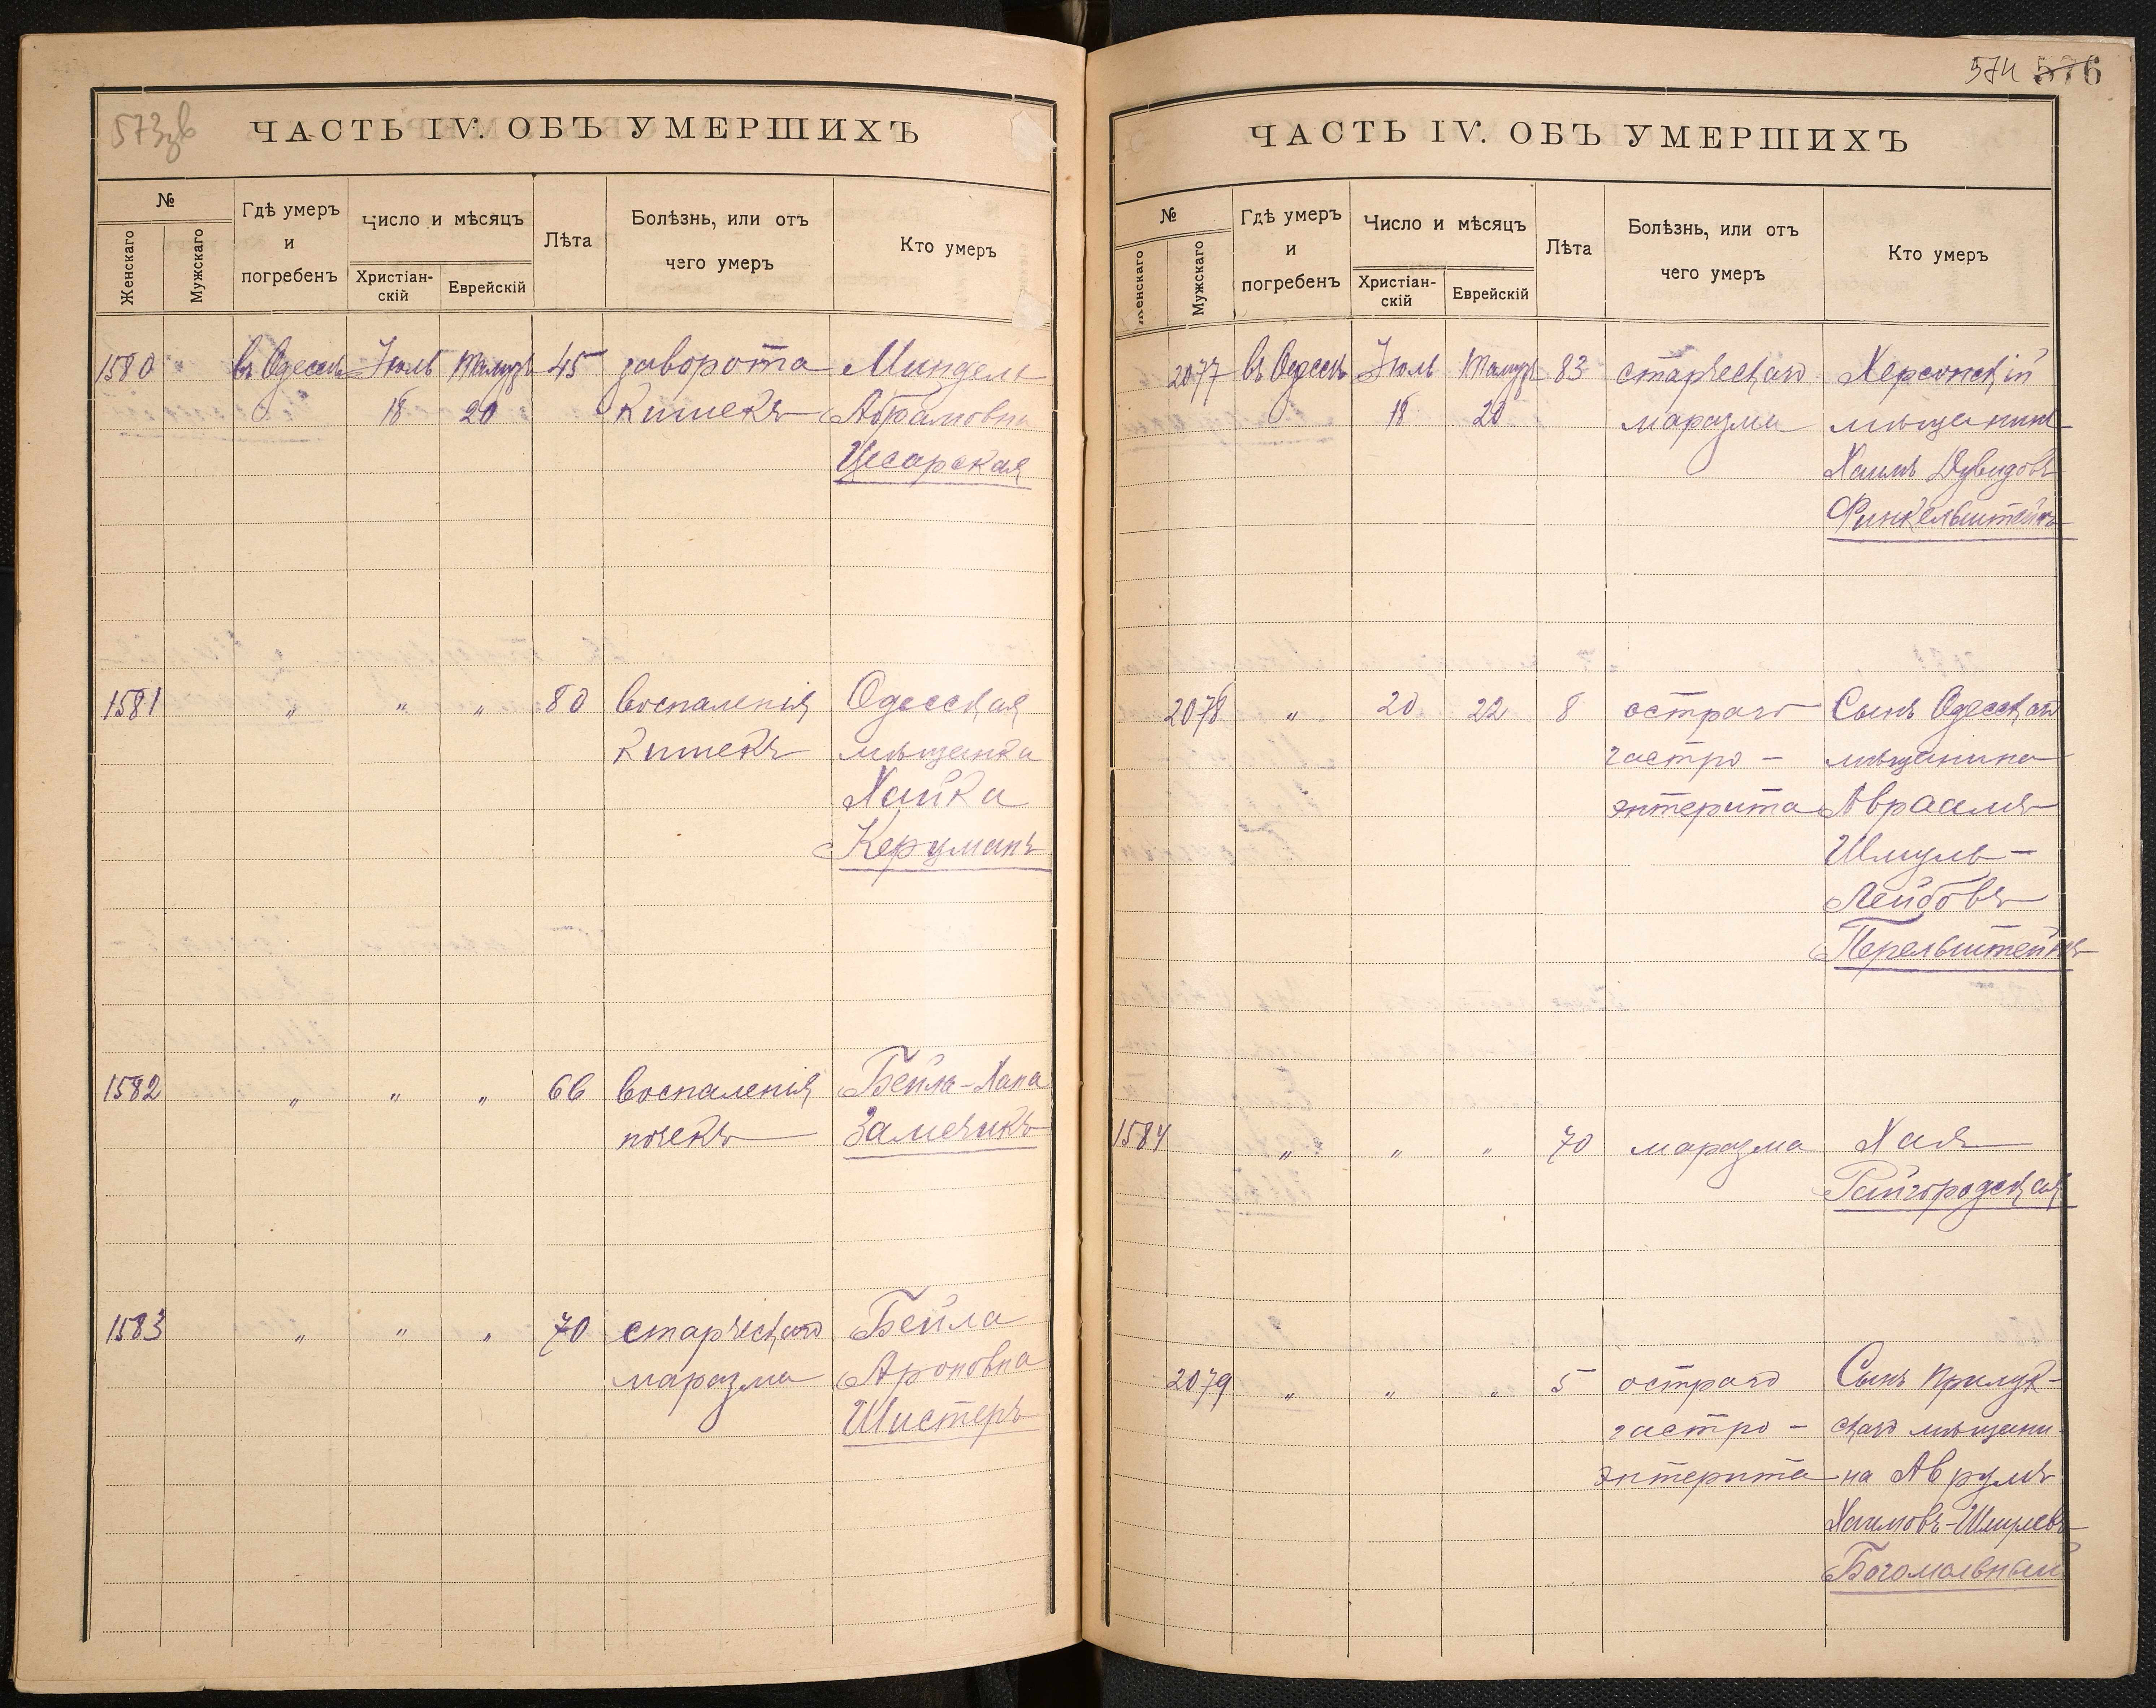 573зв
ЧАСТЬ IV. ОБЪ УМЕРШИХЪ
№
Женскаго
Мужскаго
Гдѣ умеръ
и
погребенъ
Число и мѣсяцъ
Христіан-
скій
Еврейскій
Лѣта
Болѣзнь, или отъ
чего умеръ
Кто умеръ
1580 въ Одессѣ Іюль Тамузъ 45 заворота Миндель
18 20 кишекъ Абрамовна
Цесарская
1581 " " " 80 воспаленія Одесская
кишекъ мѣщанка
Хайка
Керцманъ
1582 " " " 66 воспаленія Бейла-Хана
почекъ Замечикъ
1583 " " " 70 старческаго Бейла
маразма Ароновна
Шистеръ
574 576
ЧАСТЬ IV. ОБЪ УМЕРШИХЪ
№
Женскаго
Мужскаго
Гдѣ умеръ
и
погребенъ
Число и мѣсяцъ
Христіан-
скій
Еврейскій
Лѣта
Болѣзнь, или отъ
чего умеръ
Кто умеръ
2077 въ Одессѣ Іюль Тамузъ 83 старческаго Херсонскій
18 20 маразма мѣщанинъ
Хаимъ Дувидовъ
Финкельштейнъ
2078 " 20 22 8 остраго Сынъ Одесскаго
гастро- мѣщанина
энтерита Авраамъ
Шмуль-
Лейбовъ
Перельштейнъ
1584 " " " 70 маразма Хая
Райгородская
2079 " " " 5 остраго Сынъ Прилук-
гастро- скаго мѣщани-
энтерита на Аврумъ
Хаимовъ-Шмулевъ
Богомольный